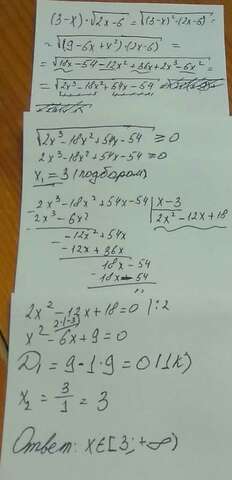 (3-x)·√2x-6 = √(3-x)²·(2x-6) =
= √(9-6x+x²)·(2x-6) =
= √18x-54-12x²+36x+2x³-6x² =
= √2x³-18x²+54x-54
√2x³-18x²+54x-54 ≥ 0
2x³-18x²+54x-54 ≥ 0
x₁ = 3 (подбором)
2x³-18x²+54x-54 | x-3
2x³-6x² | 2x²-12x+18
-12x²+54x
-12x+36x
18x-54
18x-54
2x²-12x+18=0 |:2
x²-6x+9=0
D₁ = 9-1·9 = 0 (1к)
x₂ = 3/1 = 3
Ответ: x∈[3; +∞)